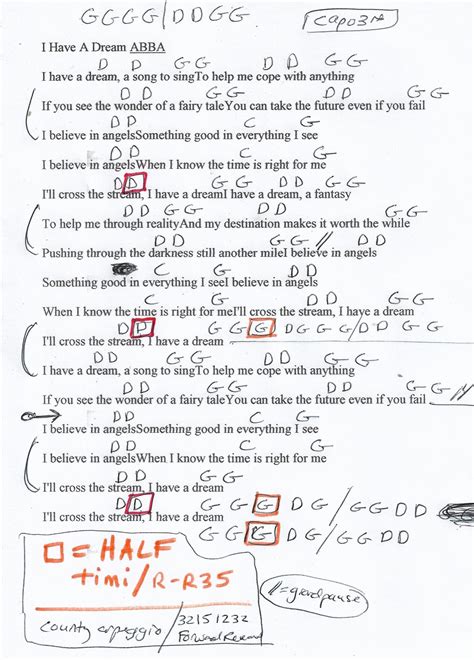 GGGG/DDGG Capo3rd
I Have A Dream ABBA
D D G G D D G G
I have a dream, a song to singTo help me cope with anything
D D G G D D G G
If you see the wonder of a fairy taleYou can take the future even if you fail
D D C G
I believe in angelsSomething good in everything I see
D D C G
I believe in angelsWhen I know the time is right for me
D D G G G G
I'll cross the stream, I have a dreamI have a dream, a fantasy
D D G G D D
To help me through realityAnd my destination makes it worth the while
D D G G // D D
Pushing through the darkness still another mileI believe in angels
C G D D
Something good in everything I seeI believe in angels
C G D D G G
When I know the time is right for meI'll cross the stream, I have a dream
D D G G G D G G G/D D G G
I'll cross the stream, I have a dream
D D G G D D G G
I have a dream, a song to singTo help me cope with anything
D D G G D D G G //
If you see the wonder of a fairy taleYou can take the future even if you fail
D D C G
I believe in angelsSomething good in everything I see
D D C G
I believe in angelsWhen I know the time is right for me
D D G G
I'll cross the stream, I have a dream
D D G G G D G / G G D D
I'll cross the stream, I have a dream
G G G D G / G G D D
= HALF
timi/R-R35
//=
county arpeggio / 32151232